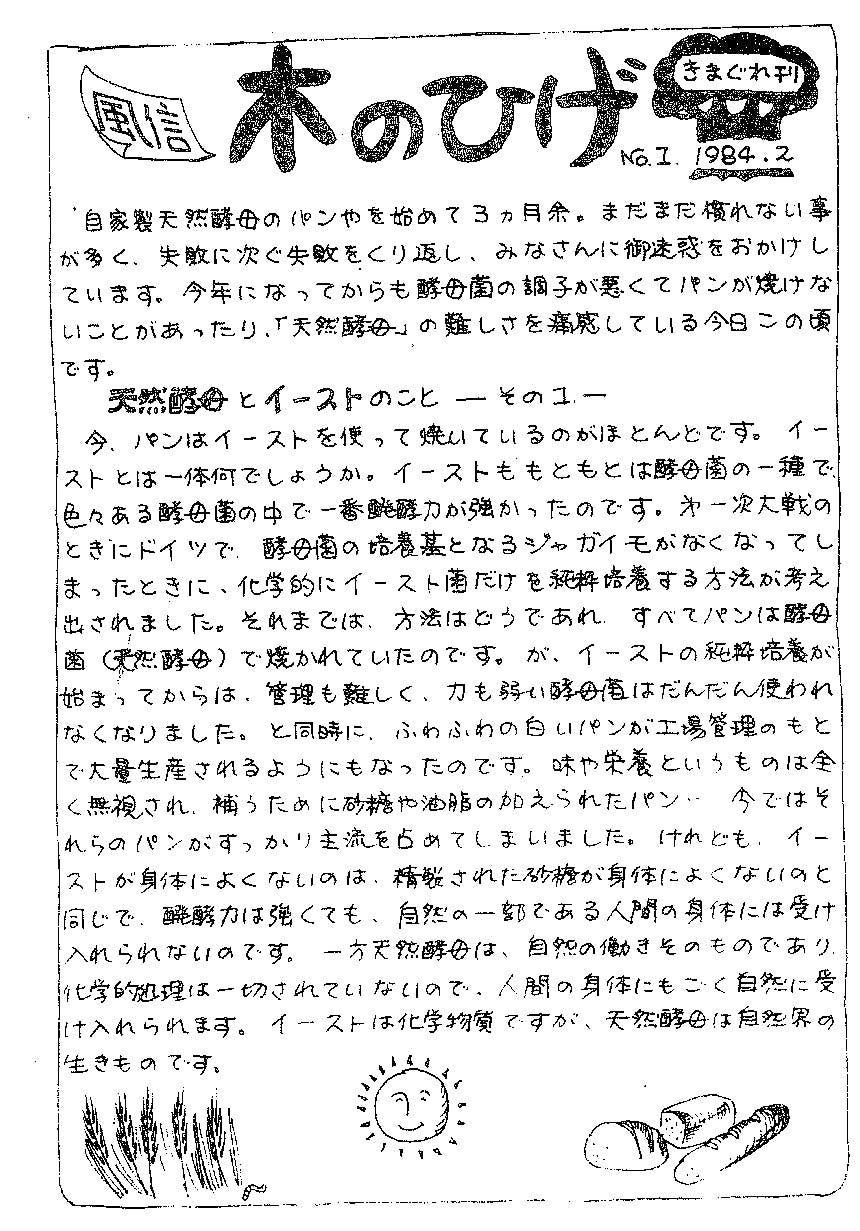 風信
木のひげ
きまぐれ刊
No.1. 1984.2
自家製天然酵母のパンやを始めて3ヵ月余。まだまだ慣れない事
が多く、失敗に次ぐ失敗をくり返し、みなさんに御迷惑をおかけし
ています。今年になってからも酵母菌の調子が悪くてパンが焼けな
いことがあったり、「天然酵母」の難しさを痛感している今日この頃
です。
天然酵母とイーストのこと ― その1 ―
今、パンはイーストを使って焼いているのがほとんどです。イー
ストとは一体何でしょうか。イーストももともとは酵母菌の一種で、
色々ある酵母菌の中で一番醗酵力が強かったのです。第一次大戦の
ときにドイツで、酵母菌の培養基となるジャガイモがなくなってし
まったときに、化学的にイースト菌だけを純粋培養する方法が考え
出されました。それまでは、方法はどうであれ、すべてパンは酵母
菌(天然酵母)で焼かれていたのです。が、イーストの純粋培養が
始まってからは、管理も難しく、力も弱い酵母菌はだんだん使われ
なくなりました。と同時に、ふわふわの白いパンが工場管理のもと
で大量生産されるようにもなったのです。味や栄養というものは全
く無視され、補うために砂糖や油脂の加えられたパン… 今ではそ
れらのパンがすっかり主流を占めてしまいました。けれども、イー
ストが身体によくないのは、精製された砂糖が身体によくないのと
同じで、醗酵力は強くても、自然の一部である人間の身体には受け
入れられないのです。一方天然酵母は、自然の働きそのものであり、
化学的処理は一切されていないので、人間の身体にもごく自然に受
け入れられます。イーストは化学物質ですが、天然酵母は自然界の
生きものです。